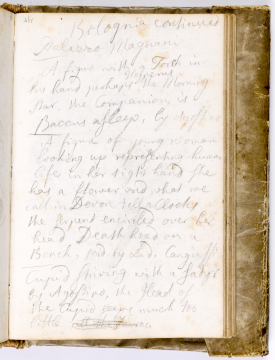 Bologna continued
Palazzo Magnani
A figure with a Torch in
his hand perhaps the Morning
Star. the Companion is
Baccus asleep, by Agostino
A figure of young woman
looking up representing human
life in her right hand she
has a flower and what we
call in Devon
the serpent encircled over her
head Death head on a
Bench, said by Lud: Caracci
Cupid striving with a Satyr
by Agostino, the Head of
the Cupid much too
little